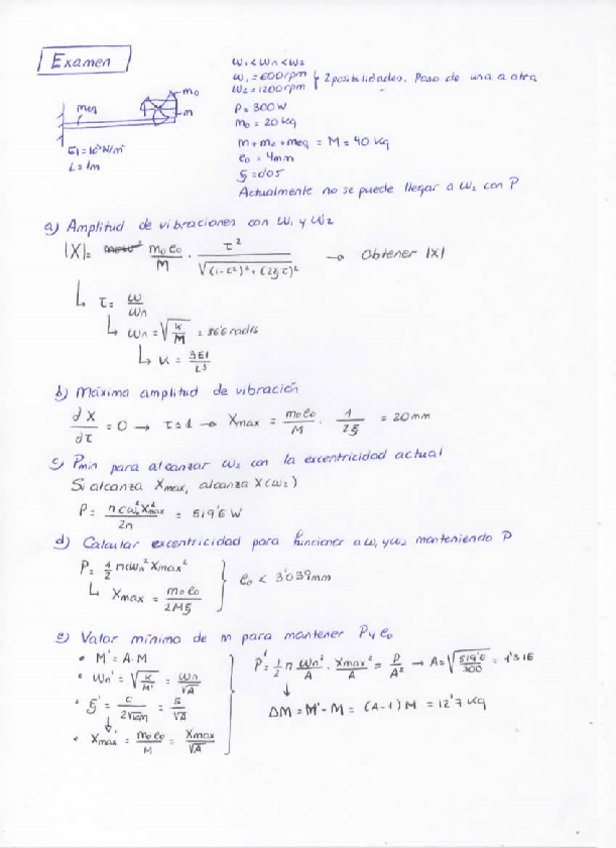 Examen
ω₁ < ωn < ω₂
ω₁ = 600 rpm
ω₂ = 1200 rpm } 2 posibilidades. Paso de una a otra
P = 300 W
m₀ = 20 kg
m + m₀ + meq = M = 40 kg
e₀ = 4mm
ξ = 0'05
Actualmente no se puede llegar a ω₂ con P
m₀
meq
m
L = 1m
a) Amplitud de vibraciones con ω₁ y ω₂
|X| = m₀e₀/M · τ²/√((1-τ²)² + (2ξτ)²) → Obtener |X|
↳ τ = ω/ωn
↳ ωn = √(k/M) = 86'6 rad/s
↳ K = 3EI/L³
b) Máxima amplitud de vibración
dX/dτ = 0 → τ = 1 → Xmax = m₀e₀/M · 1/2ξ = 20 mm
c) Pmin para alcanzar ω₂ con la excentricidad actual
Si alcanza Xmax, alcanza X(ω₂)
P = πcωn²Xmax²/2π = 519'6 W
d) Calcular excentricidad para funcionar a ω₁ y ω₂ manteniendo P
P = ½ πcωn² Xmax²
↳ Xmax = m₀e₀/2Mξ } e₀ < 3'039mm
e) Valor mínimo de m para mantener P y e₀
• M' = A·M
• ωn' = √(k/M') = ωn/√A
• ξ' = c/2√km = ξ/√A
• Xmax' = m₀e₀/M = Xmax/√A
P' = ½ π ωn²/A · Xmax²/A = P/A² → A = √(519'6/300) = 1'316
↓
ΔM = M' - M = (A-1) M = 12'7 kg